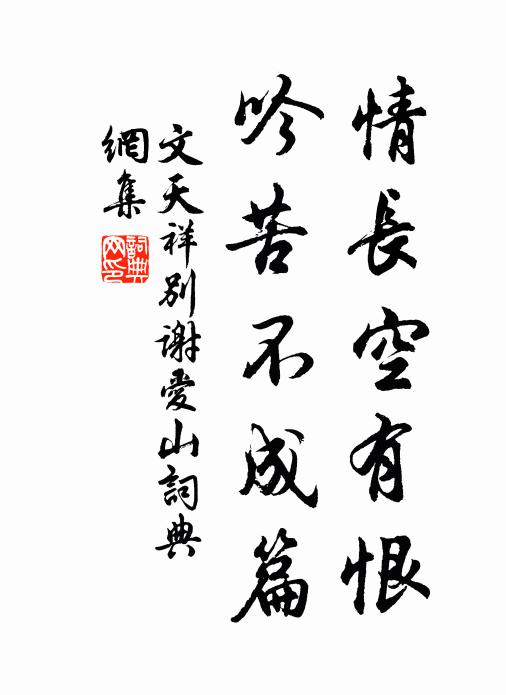 情長空有恨
吟苦不成篇
文天祥別謝愛山詞典
網集
詞典網印